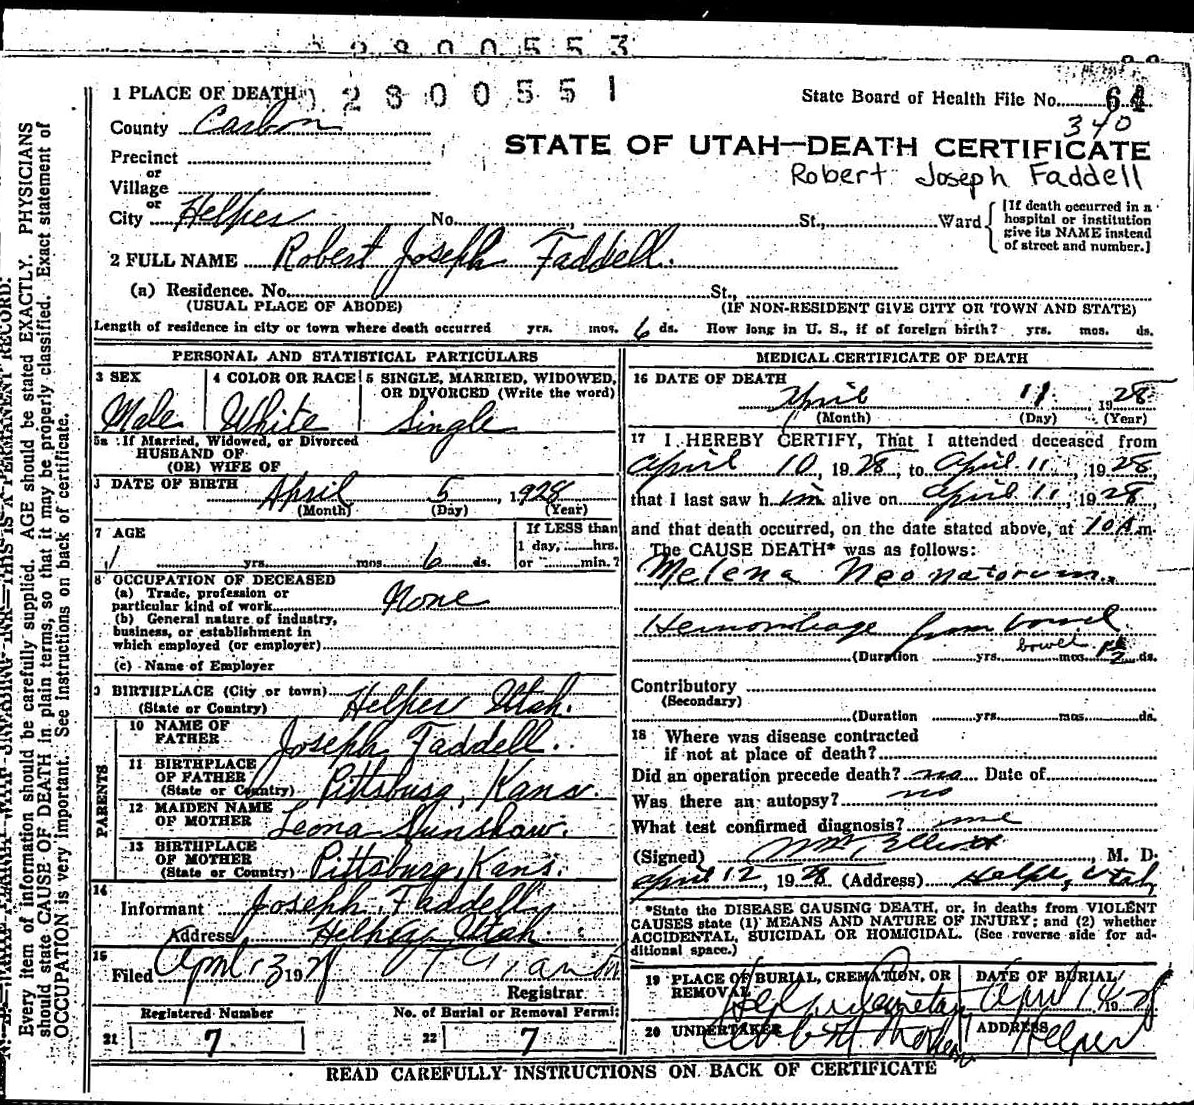 2800553
02800551
1 PLACE OF DEATH
State Board of Health File No. 64
340
County Carbon
STATE OF UTAH—DEATH CERTIFICATE
Precinct
or
Village
Robert Joseph Faddell
or
City Helper No. St., Ward
[If death occurred in a hospital or institution give its NAME instead of street and number.]
2 FULL NAME Robert Joseph Faddell.
(a) Residence. No. St.,
(USUAL PLACE OF ABODE) (IF NON-RESIDENT GIVE CITY OR TOWN AND STATE)
Length of residence in city or town where death occurred yrs. mos. 6 ds. How long in U. S., if of foreign birth? yrs. mos. ds.
PERSONAL AND STATISTICAL PARTICULARS
3 SEX
Male
4 COLOR OR RACE
White
5 SINGLE, MARRIED, WIDOWED, OR DIVORCED (Write the word)
Single
5a If Married, Widowed, or Divorced
HUSBAND OF
(OR) WIFE OF
DATE OF BIRTH
April 5, 1928
(Month) (Day) (Year)
7 AGE
yrs. mos. 6 ds.
If LESS than
1 day, hrs.
or min.?
8 OCCUPATION OF DECEASED
(a) Trade, profession or
particular kind of work None
(b) General nature of industry,
business, or establishment in
which employed (or employer)
(c) Name of Employer
9 BIRTHPLACE (City or town) Helper Utah.
(State or Country)
PARENTS
10 NAME OF FATHER Joseph Faddell.
11 BIRTHPLACE OF FATHER Pittsburg, Kans.
(State or Country)
12 MAIDEN NAME OF MOTHER Leona
13 BIRTHPLACE OF MOTHER Pittsburg, Kans.
(State or Country)
14
Informant Joseph Faddell
Address Helper Utah
15
Filed April 13 1928
Registrar
Registered Number
21 7
No. of Burial or Removal Permit
22 7
MEDICAL CERTIFICATE OF DEATH
16 DATE OF DEATH
April 11 1928
(Month) (Day) (Year)
17 I HEREBY CERTIFY, That I attended deceased from
April 10, 1928, to April 11, 1928,
that I last saw him alive on April 11, 1928,
and that death occurred, on the date stated above, at 10 A.m.
The CAUSE DEATH* was as follows:
Melena Neonatorum.
Hemorrhage from bowel
bowel
(Duration yrs. mos. 2 ds.
Contributory
(Secondary)
(Duration yrs. mos. ds.
18 Where was disease contracted
if not at place of death?
Did an operation precede death? no Date of
Was there an autopsy? no
What test confirmed diagnosis?
(Signed) Elliott, M. D.
April 12, 1928 (Address) Helper, Utah
*State the DISEASE CAUSING DEATH, or. in deaths from VIOLENT
CAUSES state (1) MEANS AND NATURE OF INJURY; and (2) whether
ACCIDENTAL, SUICIDAL OR HOMICIDAL. (See reverse side for ad-
ditional space.)
19 PLACE OF BURIAL, CREMATION, OR REMOVAL
Helper Cemetery
DATE OF BURIAL
April 14 1928
20 UNDERTAKER
ADDRESS
Helper
READ CAREFULLY INSTRUCTIONS ON BACK OF CERTIFICATE
Every item of information should be carefully supplied. AGE should be stated EXACTLY. PHYSICIANS
should state CAUSE OF DEATH in plain terms, so that it may be properly classified. Exact statement of
OCCUPATION is very important. See instructions on back of certificate.